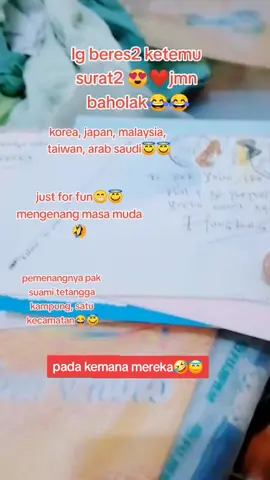 lg beres2 ketemu
surat2 😍❤️jmn
baholak😂😂
korea, japan, malaysia,
taiwan, arab saudi😇😇
just for fun😁😇
mengenang masa muda
🤣
pemenangnya pak
suami tetangga
kampung, satu
kecamatan😂😋
pada kemana mereka🤣😇